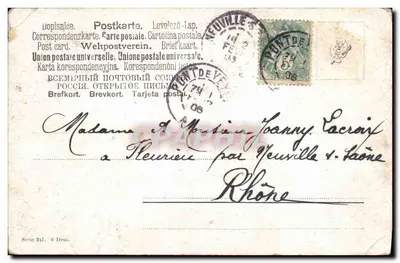 Dopisnice. Postkarte. Levelező-Lap.
Correspondenzkarte. Carte postale. Cartolina postale.
Post card. Wehpostverein. Briefkaart.
Union postale universelle. Unione postale universale.
Karta korespondencyjna. Korespondenční lístek.
ВСЕМІРНЫЙ ПОЧТОВЫЙ СОЮЗ
РОССІЯ. ОТКРЫТОЕ ПИСЬМО
Brefkort. Brevkort. Tarjeta postal.
NEUVILLE
PONT DE VE
PONT DE VE
Madame, & Monsieur Joanny Lacroix
à Fleurieu par Neuville s-Saône
Rhône
Serie 247. 6 Dess.